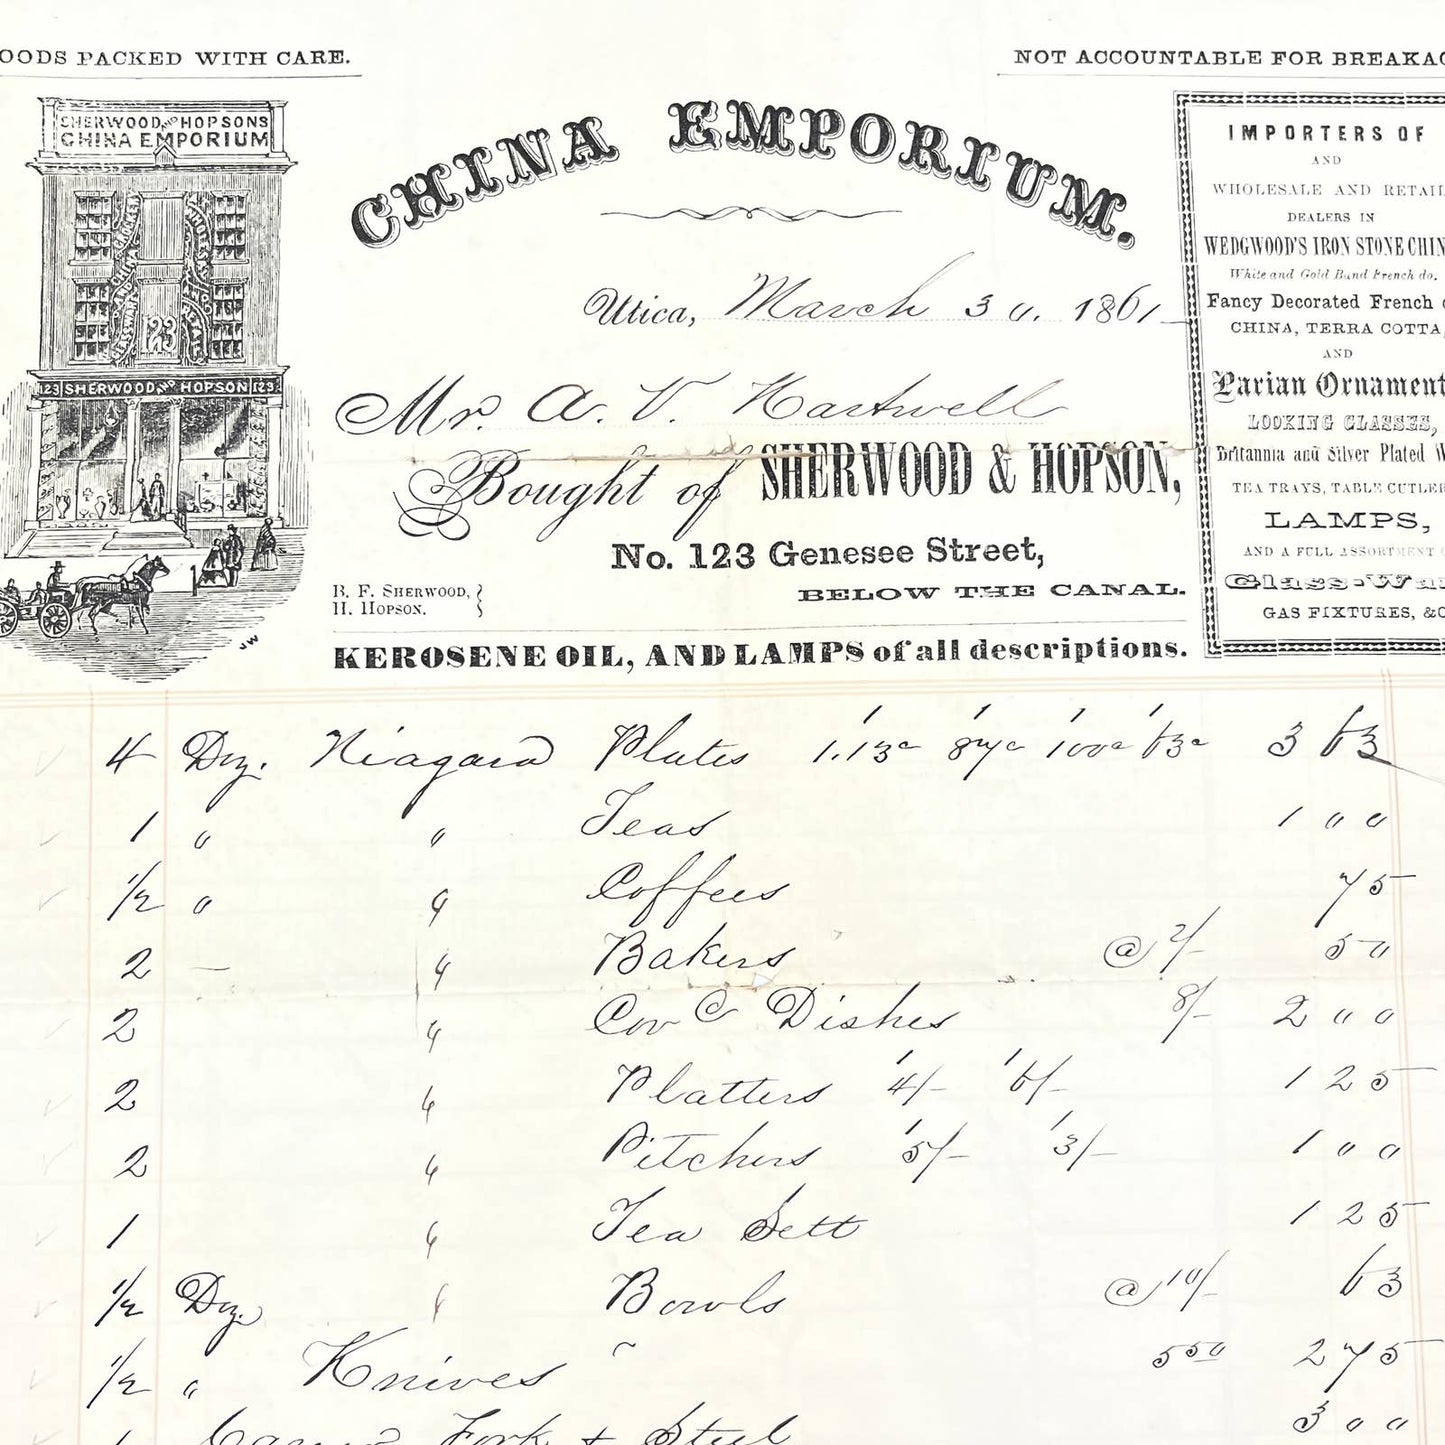 OODS PACKED WITH CARE.
NOT ACCOUNTABLE FOR BREAKAG
SHERWOOD AND HOPSONS
CHINA EMPORIUM
123
123 SHERWOOD AND HOPSON 123
JW
CHINA EMPORIUM.
Utica, March 30. 1861
Mr. A. V. Hartwell
Bought of SHERWOOD & HOPSON,
No. 123 Genesee Street,
BELOW THE CANAL.
R. F. SHERWOOD,
H. HOPSON.
KEROSENE OIL, AND LAMPS of all descriptions.
IMPORTERS OF
AND
WHOLESALE AND RETAIL
DEALERS IN
WEDGWOOD'S IRON STONE CHIN
White and Gold Band French do.
Fancy Decorated French
CHINA, TERRA COTTA,
AND
Parian Ornament
LOOKING GLASSES,
Britannia and Silver Plated W
TEA TRAYS, TABLE CUTLER
LAMPS,
AND A FULL ASSORTMENT O
Glass-Wa
GAS FIXTURES, &C
4 Doz. Niagara Plates 1 1.13c 1 87c 1 100c 1 63c 3 63
1 " " Teas 1 00
1/2 " " Coffees 75
2 — " Bakers @ 2/- 50
2 " Cov d Dishes 8/- 2 00
2 " Platters 1 4/- 1 6/- 1 25
2 " Pitchers 1 5/- 1 3/- 1 00
1 " Tea Sett 1 25
1/2 Doz. " Bowls @ 10/- 63
1/2 " Knives 5 50 2 75
1 Fork & Steel 3 00